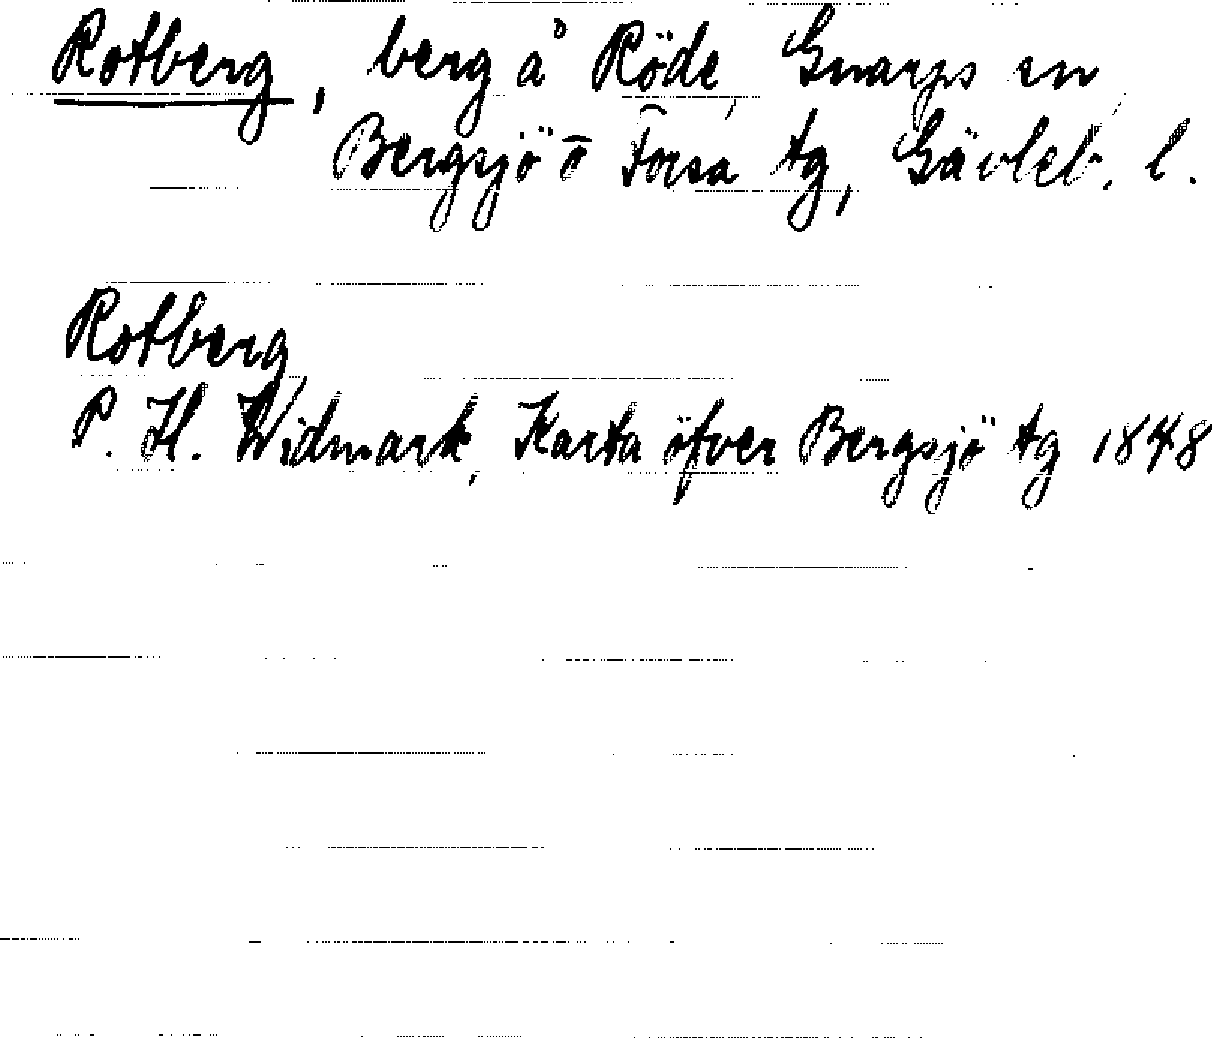 Rotberg, berg å Röde, Gnarps sn,
Bergsjö o Forsa tg, Gävleb. l.
Rotberg
P. H. Widmark, Karta öfver Bergsjö tg 1848